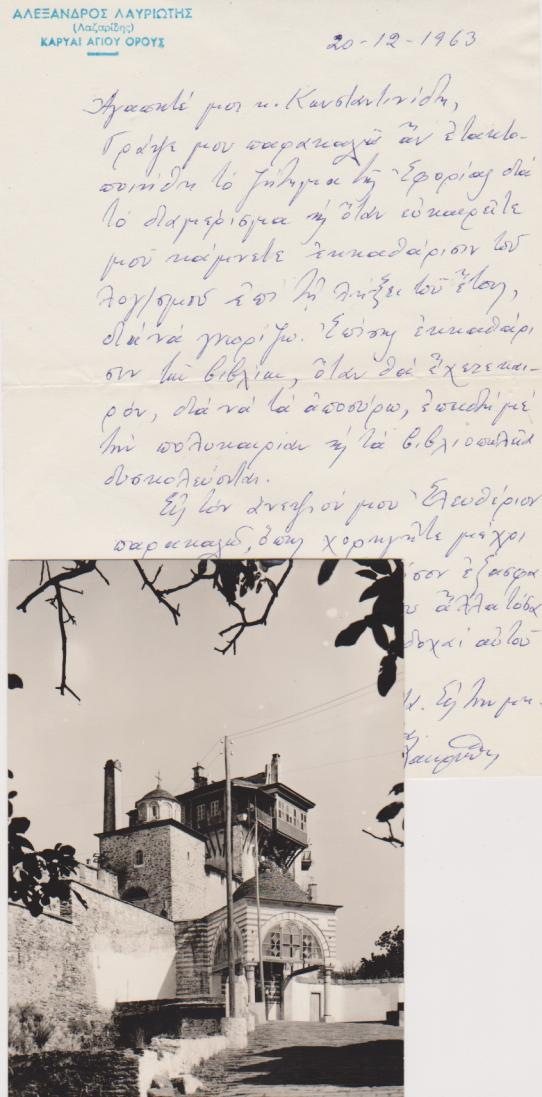 ΑΛΕΞΑΝΔΡΟΣ ΛΑΥΡΙΩΤΗΣ
(Λαζαρίδης)
ΚΑΡΥΑΙ ΑΓΙΟΥ ΟΡΟΥΣ
20-12-1963
Ἀγαπητέ μοι κ. Κωνσταντινίδη,
Γράψε μου παρακαλῶ ἂν ἐτακτο-
ποιήθη τὸ ζήτημα τῆς Ἐφορίας διὰ
τὸ διαμέρισμα ἢ ὅταν εὐκαιρεῖτε
μοῦ κάμνετε ἐκκαθάρισιν τοῦ
λογ/σμοῦ ἐπὶ τῇ λήξει τοῦ ἔτους,
διὰ νὰ γνωρίζω. Ἐπίσης ἐκκαθάρι
σιν τῶν βιβλίων, ὅταν θὰ ἔχετε και-
ρόν, διὰ νὰ τὰ ἀποσύρω, ἐπειδὴ μὲ
τὴν πολυκαιρίαν τὰ βιβλιοπωλεῖα
δυσκολεύονται.
Εἰς τὸν ἀνεψιόν μου Ἐλευθέριον
παρακαλῶ, ὅπως χορηγῆτε μέχρι
ἐξασφα
ἄλλα τόσα
δοχαὶ αὐτοῦ